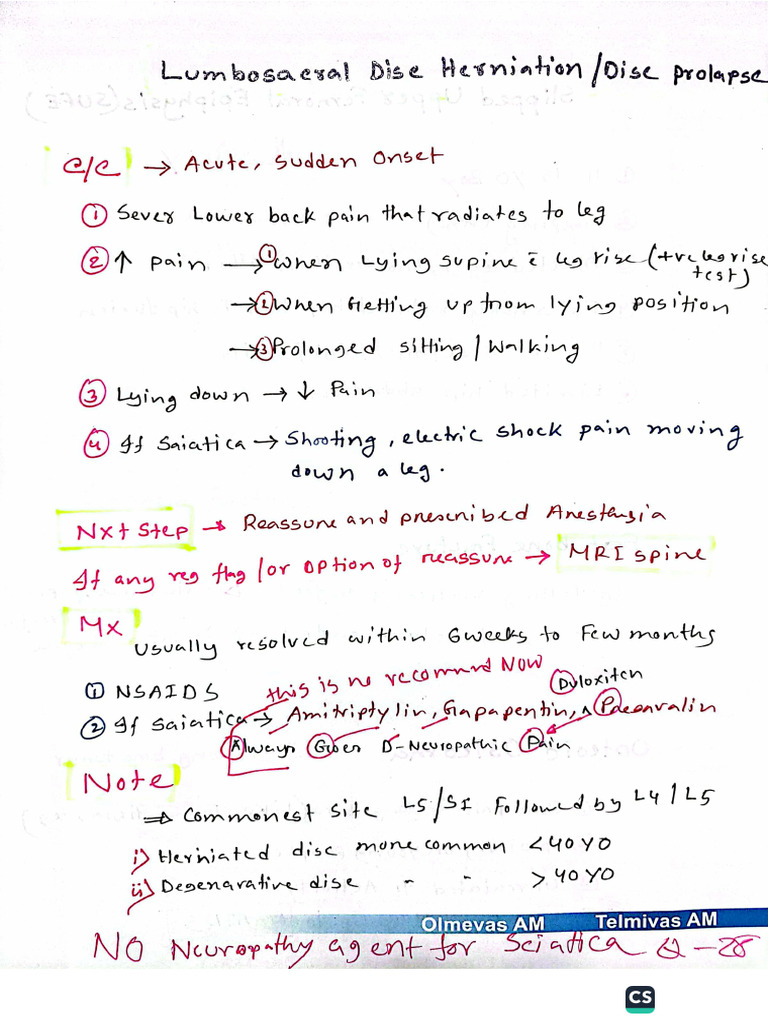 Lumbosacral Disc Herniation/Disc prolapse
C/C → Acute, Sudden Onset
① Sever Lower back pain that radiates to leg
② ↑ pain → ① When Lying supine c̄ leg rise (+ve leg rise test)
→ ② When Getting up from lying position
→ ③ Prolonged sitting / Walking
③ Lying down → ↓ Pain
④ If Saiatica → Shooting, electric shock pain moving
down a leg.
Nxt Step → Reassure and prescribed
If any reg flag/or option of reassure → MRI spine
Mx
Usually resolved within 6 weeks to Few months
① NSAIDS
this is no recommend NOW
Duloxiten
② If Saiatica → Amitriptylin, Gapapentin,
Always Goes D-Neuropathic Pain
Note
⇒ Commonest site L5/S1 Followed by L4/L5
i) Herniated disc more common < 40 YO
ii) Degenarative disc - - > 40 YO
Olmevas AM Telmivas AM
NO Neuropathy agent for Sciatica Q-28
CS